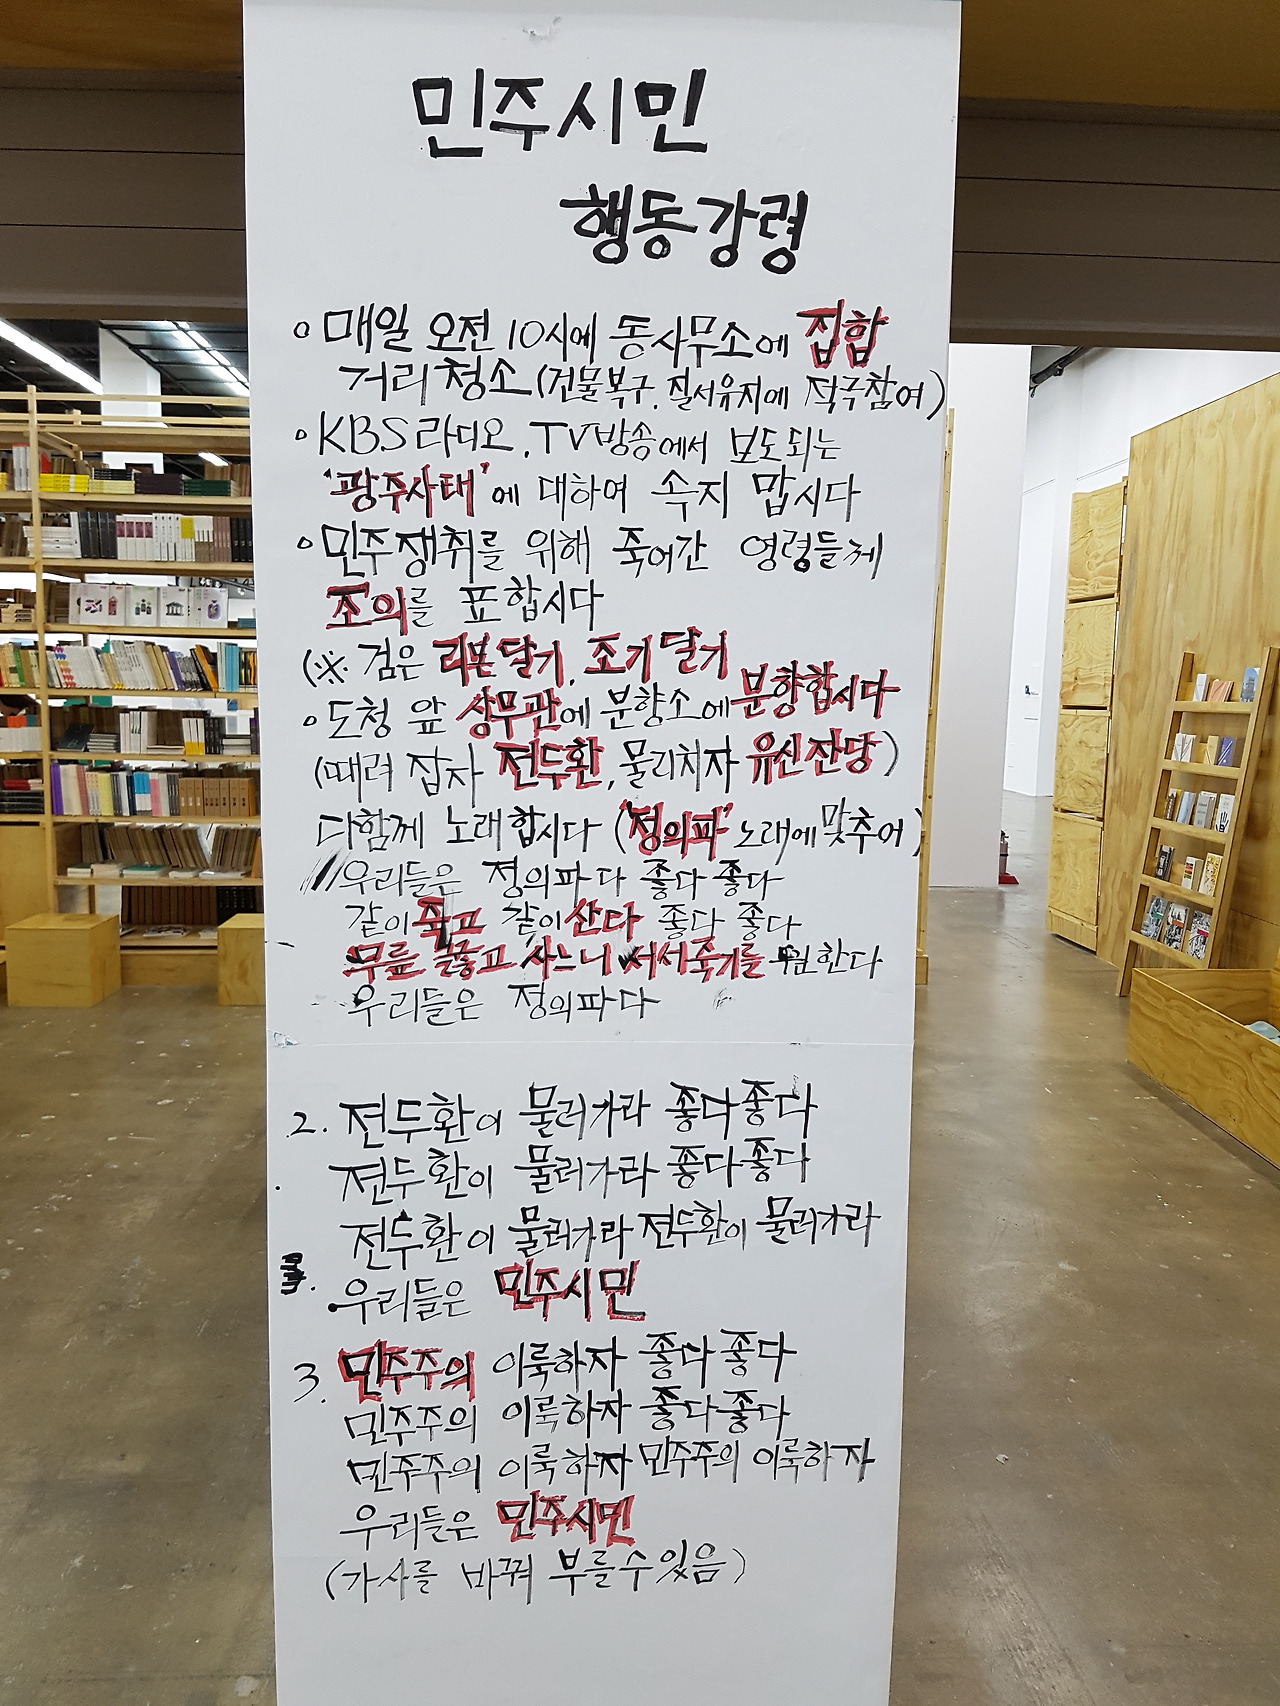 민주시민
행동강령
○ 매일 오전 10시에 동사무소에 집합
거리청소 (건물복구, 질서유지에 적극참여)
○ KBS 라디오, TV방송에서 보도되는
'광주사태'에 대하여 속지 맙시다
○ 민주쟁취를 위해 죽어간 영령들께
조의를 표합시다
(※ 검은 리본달기, 조기달기
○ 도청 앞 상무관에 분향소에 분향합시다
(때려 잡자 전두환, 물리치자 유신잔당)
다함께 노래합시다 ('정의파' 노래에 맞추어)
우리들은 정의파다 좋다 좋다
같이 죽고 같이 산다 좋다 좋다
무릎 꿇고 사느니 서서죽기를 원한다
우리들은 정의파다
2. 전두환이 물러가라 좋다좋다
전두환이 물러가라 좋다좋다
전두환이 물러가라 전두환이 물러가라
우리들은 민주시민
3. 민주주의 이룩하자 좋다좋다
민주주의 이룩하자 좋다좋다
민주주의 이룩하자 민주주의 이룩하자
우리들은 민주시민
(가사를 바꿔 부를수있음)